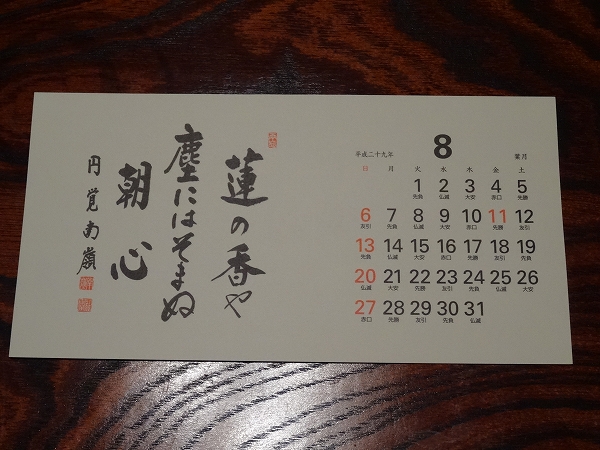 蓮の香や
塵にはそまぬ
朝心
円覚南嶺
平成二十九年 8 葉月
日 月 火 水 木 金 土
1 2 3 4 5
先負 仏滅 大安 赤口 先勝
6 7 8 9 10 11 12
友引 先負 仏滅 大安 赤口 先勝 友引
13 14 15 16 17 18 19
先負 仏滅 大安 赤口 先勝 友引 先負
20 21 22 23 24 25 26
仏滅 大安 先勝 友引 先負 仏滅 大安
27 28 29 30 31
赤口 先勝 友引 先負 仏滅